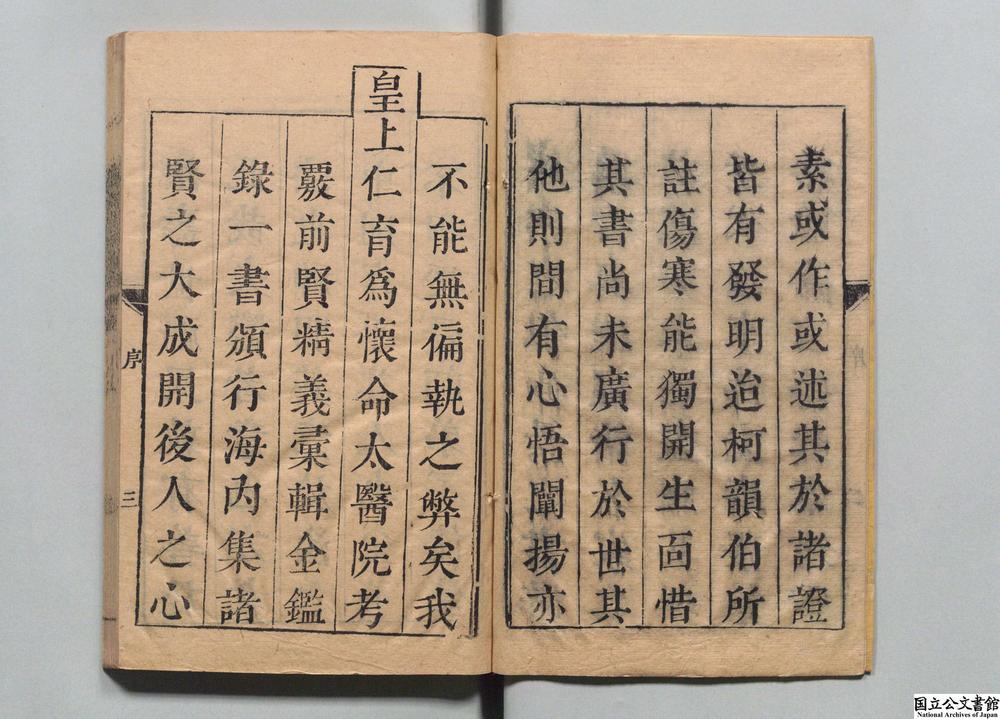 素或作或述其於諸證
皆有發明迨柯韻伯所
註傷寒能獨開生面惜
其書尚未廣行於世其
他則間有心悟闡揚亦
不能無偏執之弊矣我
皇上仁育爲懷命太醫院考
覈前賢精義彙輯金鑑
錄一書頒行海內集諸
賢之大成開後人之心
序
三
国立公文書館
National Archives of Japan